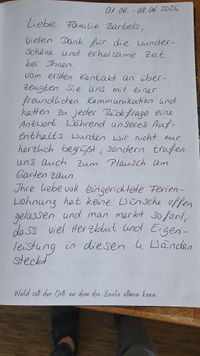 01.06. - 08.06.2024
Liebe Familie Bartels,
vielen Dank für die wunder-
schöne und erholsame Zeit
bei Ihnen.
Vom ersten Kontakt an über-
zeugten Sie uns mit einer
freundlichen Kommunikation und
hatten zu jeder Rückfrage eine
Antwort. Während unseres Auf-
enthalts wurden wir nicht nur
herzlich begrüßt, sondern trafen
uns auch zum Plausch am
Gartenzaun.
Ihre liebevoll eingerichtete Ferien-
wohnung hat keine Wünsche offen
gelassen und man merkt sofort,
dass viel Herzblut und Eigen-
leistung in diesen 4 Wänden
steckt.
Wald ist der Ort, an dem die Seele atmen kann.